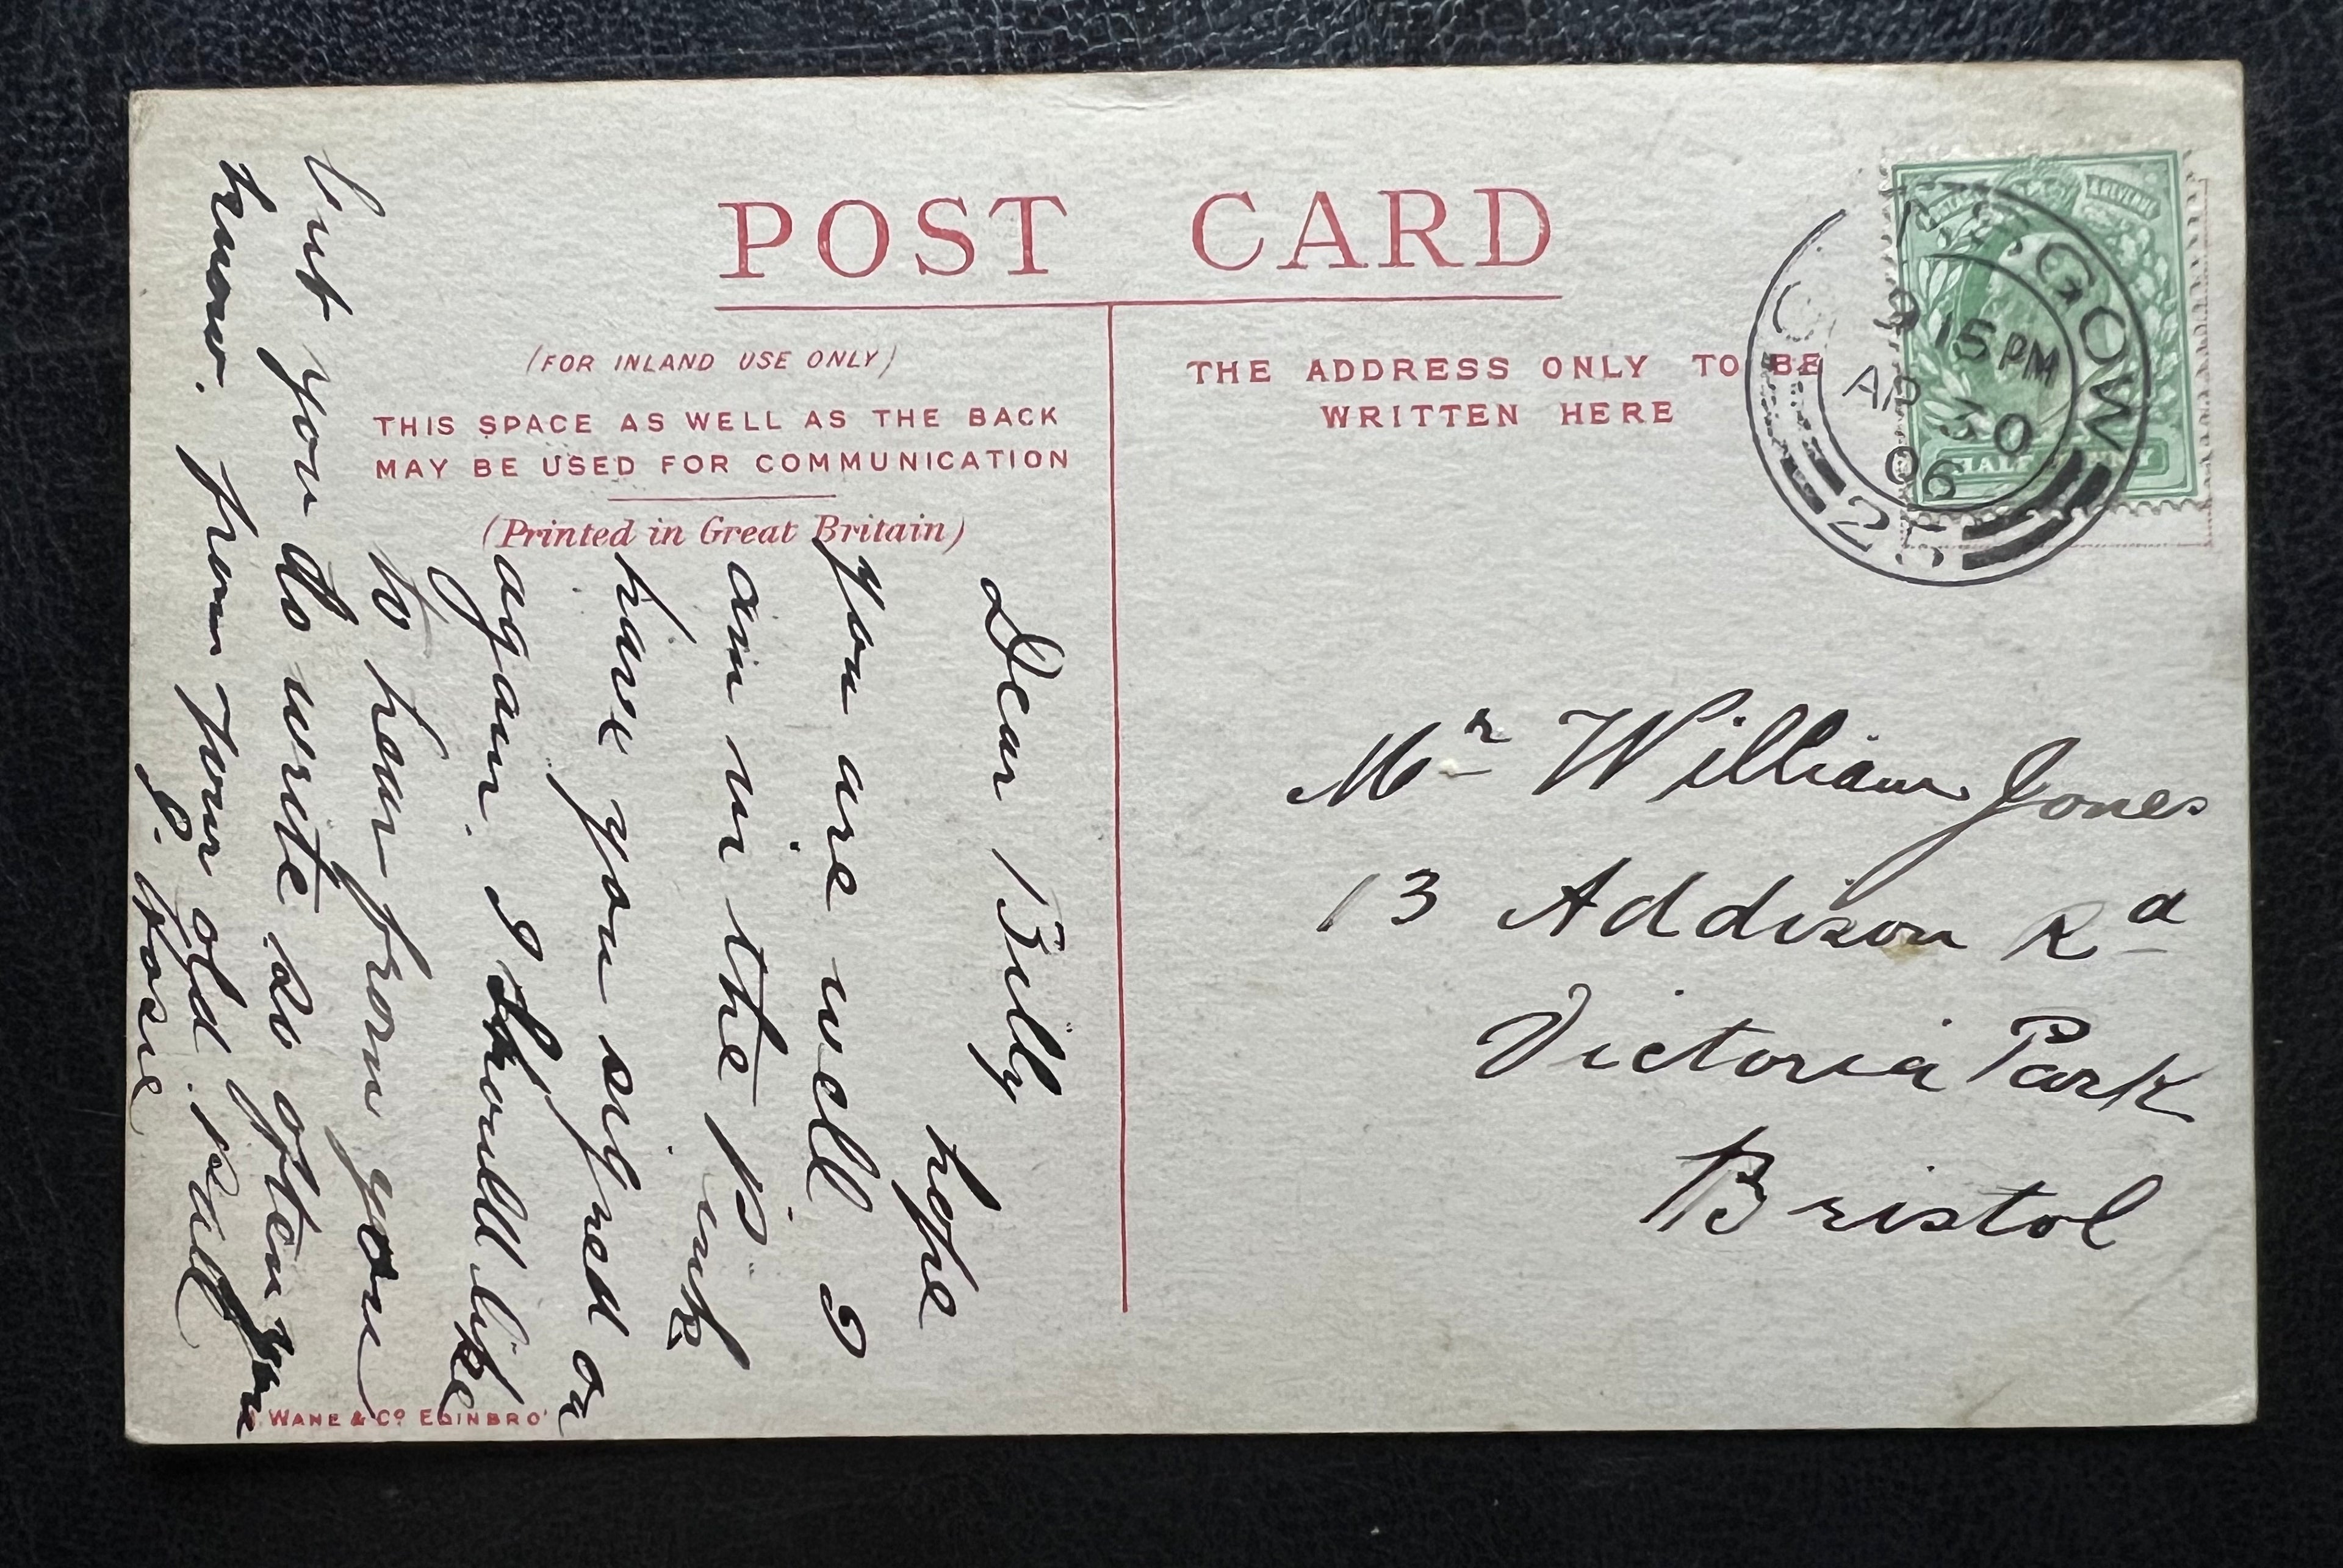 POST CARD
(FOR INLAND USE ONLY)
THIS SPACE AS WELL AS THE BACK
MAY BE USED FOR COMMUNICATION
(Printed in Great Britain)
THE ADDRESS ONLY TO BE
WRITTEN HERE
GLASGOW
9 15 PM
AP 30
06
Dear Billy
hope
you are well I
am in the pink
have you sigfred on
again. I should like
to hear from you
but you do write so often you
know. from your old
Mr William Jones
13 Addison Rd
Victoria Park
Bristol
WANE & Co EDINBRO'